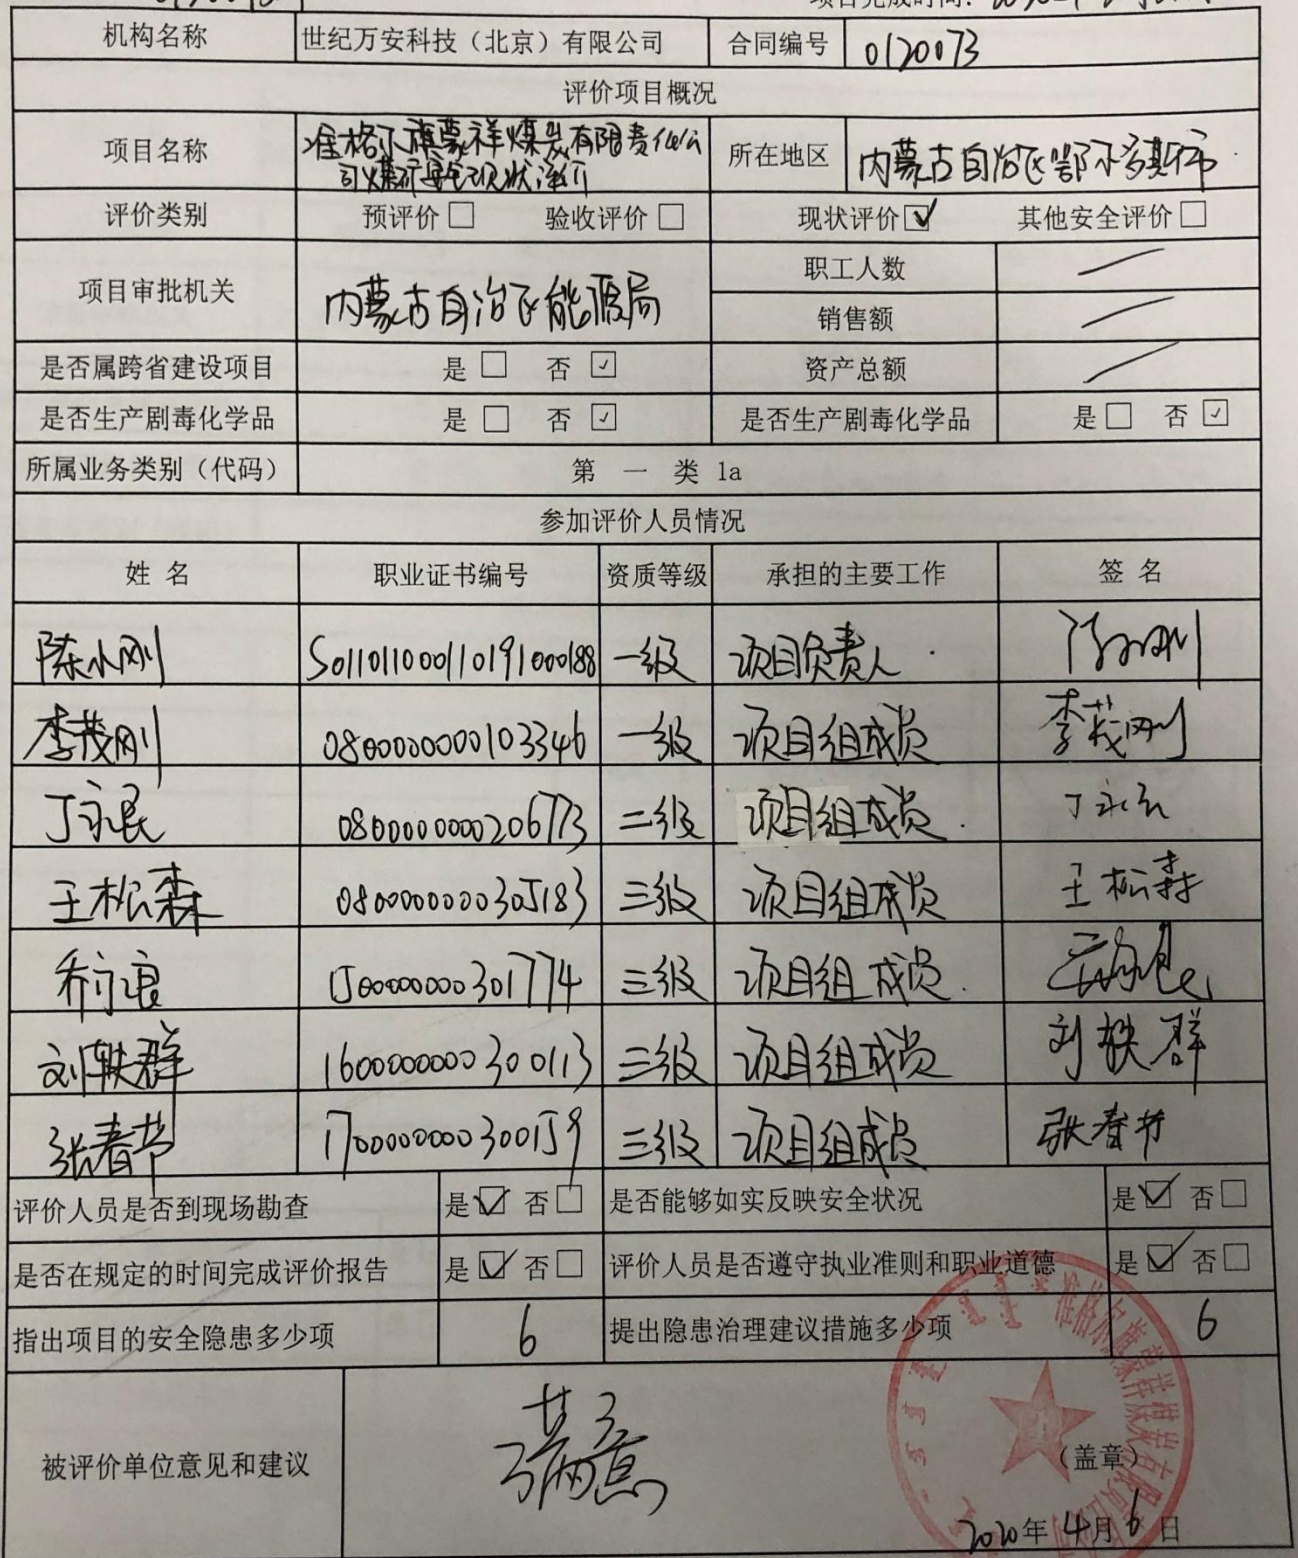 项目完成时间：
机构名称 世纪万安科技（北京）有限公司 合同编号 0120073
评价项目概况
项目名称 准格尔旗蒙祥煤炭有限责任公
司煤矿安全现状评价 所在地区 内蒙古自治区鄂尔多斯市
评价类别 预评价□ 验收评价□ 现状评价☑ 其他安全评价□
项目审批机关 内蒙古自治区能源局 职工人数 /
销售额 /
是否属跨省建设项目 是□ 否☑ 资产总额 /
是否生产剧毒化学品 是□ 否☑ 是否生产剧毒化学品 是□ 否☑
所属业务类别（代码） 第 一 类 1a
参加评价人员情况
姓 名 职业证书编号 资质等级 承担的主要工作 签 名
陈小刚 S011011000110191000188 一级 项目负责人
李茂刚 0800000000103346 一级 项目组成员 李茂刚
丁永民 0800000000206773 二级 项目组成员 丁永民
王松森 0800000000305183 三级 项目组成员 王松森
乔浪 1500000000301774 三级 项目组成员
刘轶群 1600000000300113 三级 项目组成员 刘轶群
张春节 1700000000300159 三级 项目组成员 张春节
评价人员是否到现场勘查 是☑ 否□ 是否能够如实反映安全状况 是☑ 否□
是否在规定的时间完成评价报告 是☑ 否□ 评价人员是否遵守执业准则和职业道德 是☑ 否□
指出项目的安全隐患多少项 6 提出隐患治理建议措施多少项 6
被评价单位意见和建议 满意
（盖章）
2020年 4月 6日